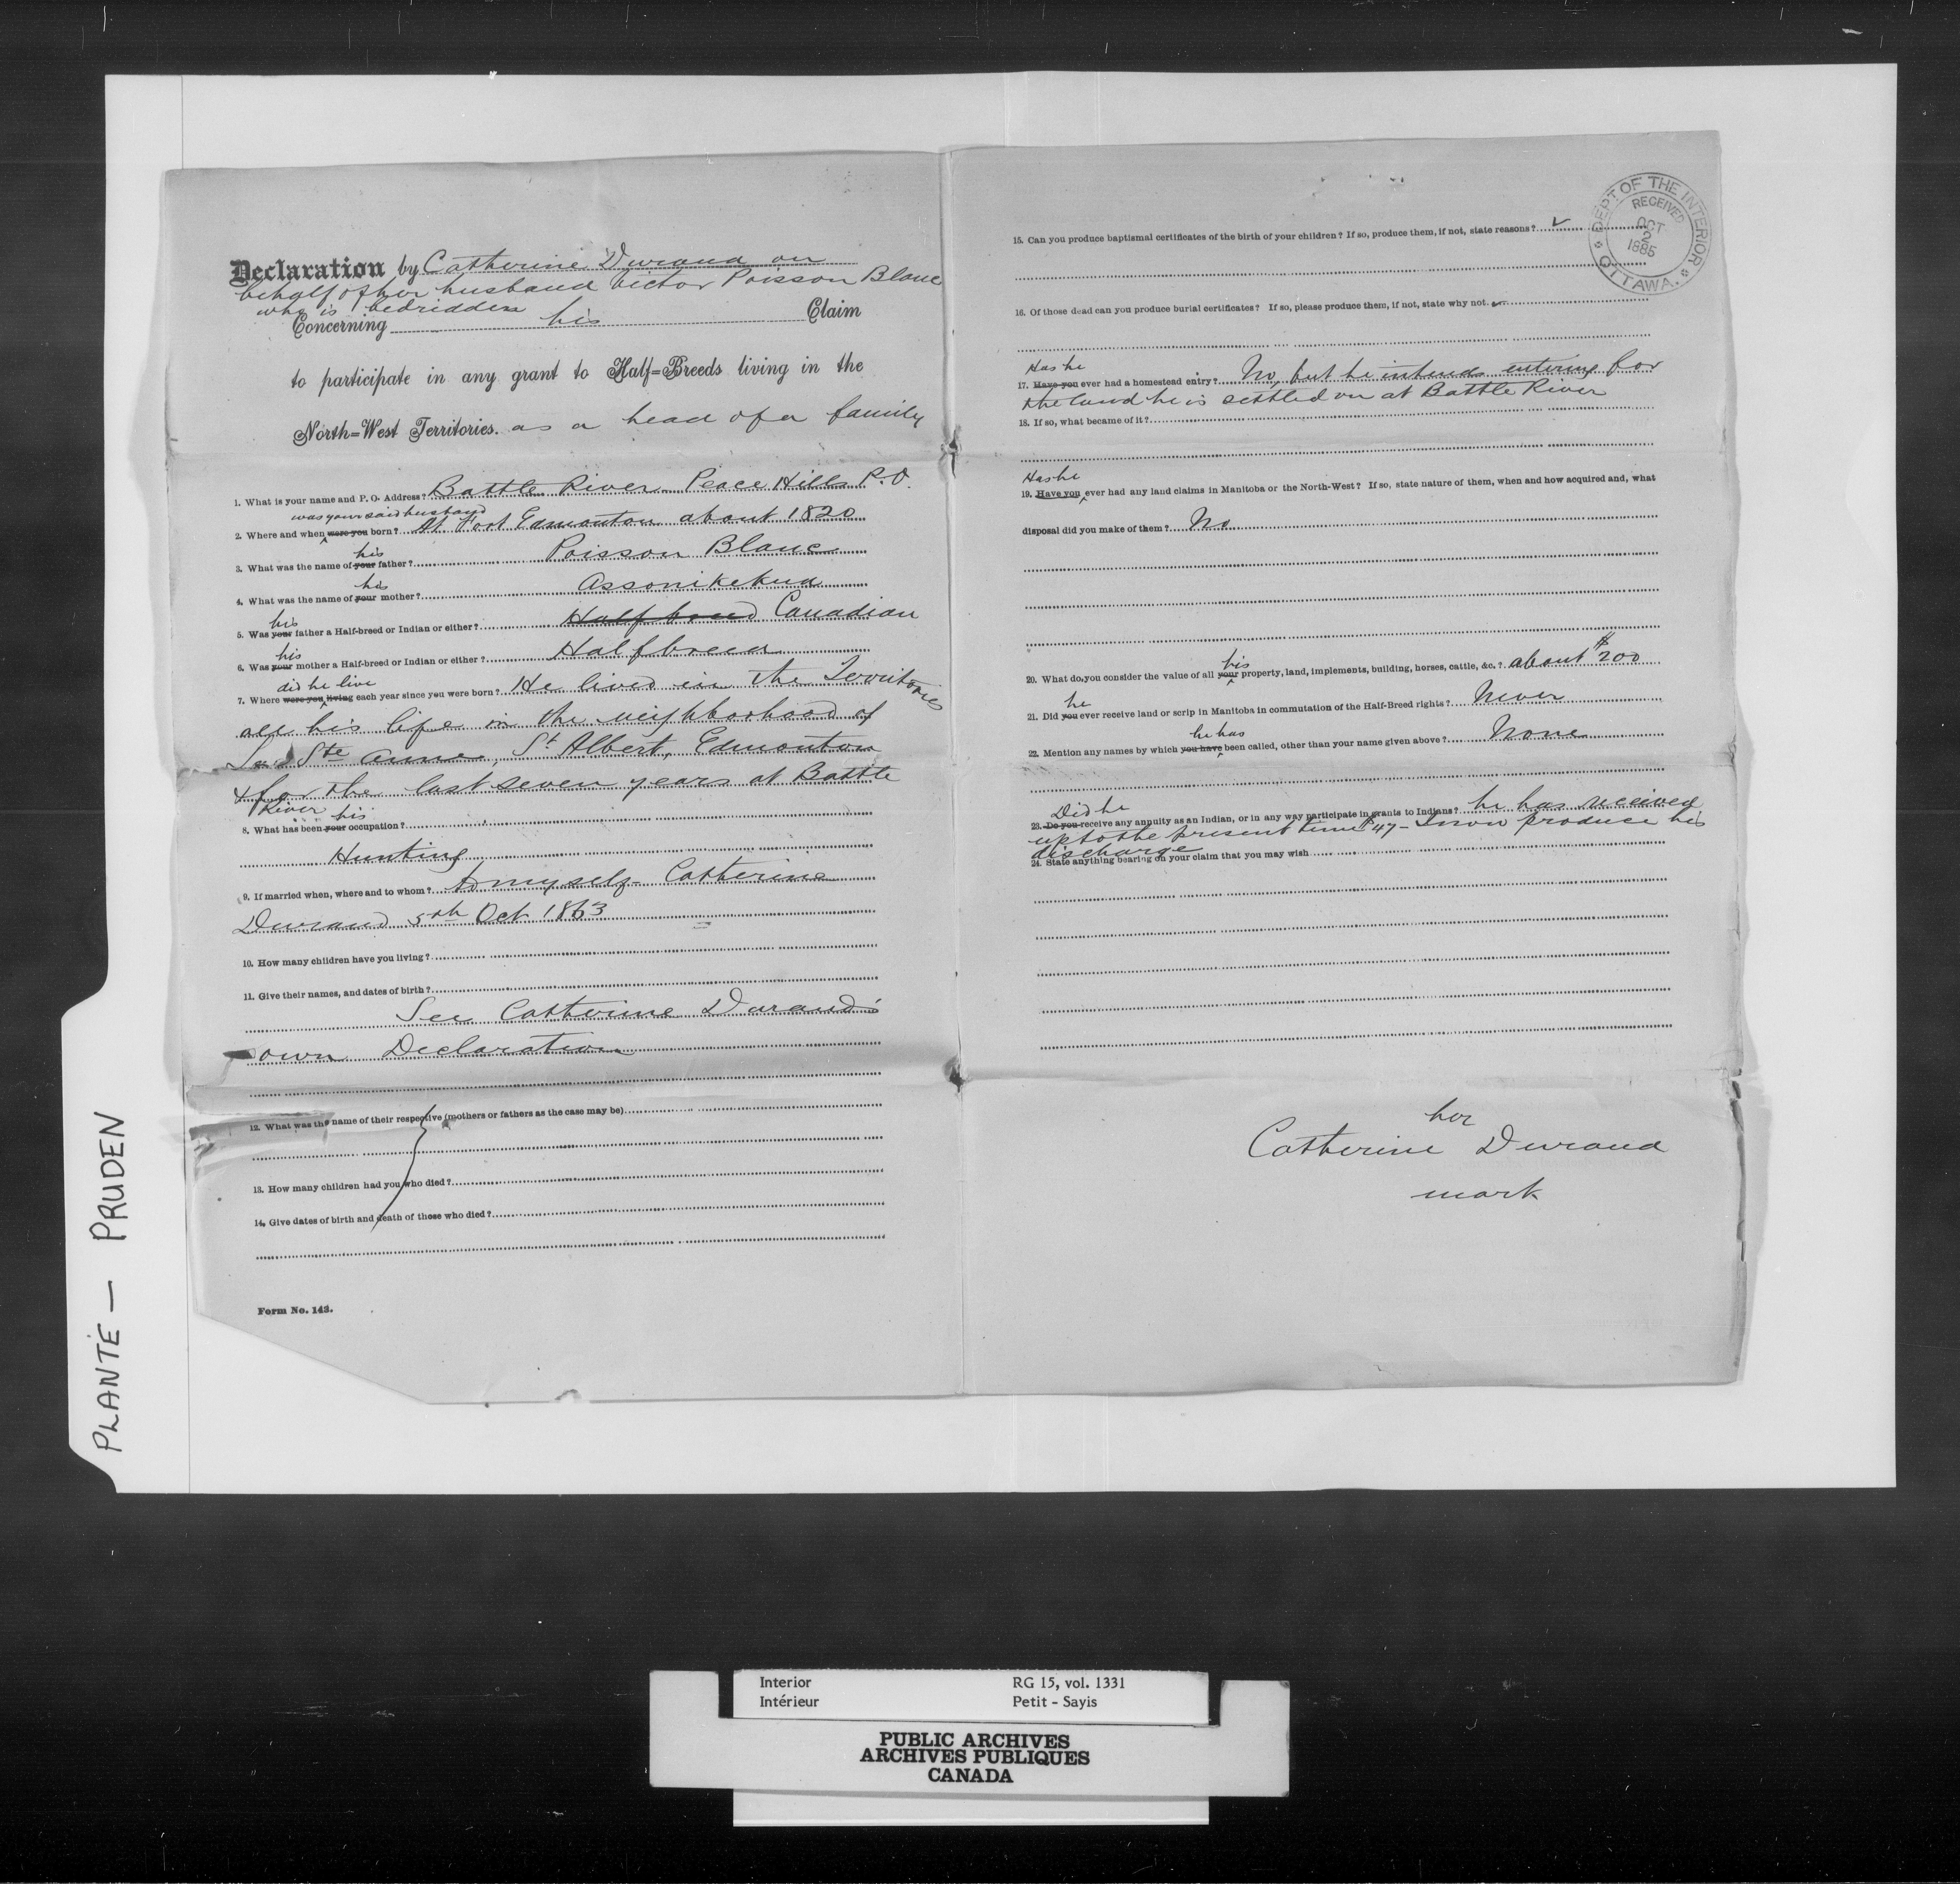 Declaration by Catherine Durand on
behalf of her husband Victor Poisson Blanc
who is bedridden
Concerning his Claim
to participate in any grant to Half=Breeds living in the
North=West Territories. as a head of a family
1. What is your name and P. O. Address? Battle River Peace Hills P.O.
was your said husband
2. Where and when were you born? At Fort Edmonton about 1820
his
3. What was the name of your father? Poisson Blanc
his
4. What was the name of your mother? Assonikekua
his
5. Was your father a Half-breed or Indian or either? Halfbreed Canadian
his
6. Was your mother a Half-breed or Indian or either? Halfbreed
did he live
7. Where were you living each year since you were born? He lived in the Territories
all his life in the neighborhood of
Ste Anne, St Albert, Edmonton
& for the last seven years at Battle
River his
8. What has been your occupation?
Hunting
9. If married when, where and to whom? to myself Catherine
Durand 5th Oct 1863
10. How many children have you living?
11. Give their names, and dates of birth?
See Catherine Durand's
own Declaration
12. What was the name of their respective (mothers or fathers as the case may be)
13. How many children had you who died?
14. Give dates of birth and death of those who died?
Form No. 143.
15. Can you produce baptismal certificates of the birth of your children? If so, produce them, if not, state reasons?
DEPT OF THE INTERIOR
RECEIVED
OCT
2
1885
OTTAWA.
16. Of those dead can you produce burial certificates? If so, please produce them, if not, state why not.
Has he
17. Have you ever had a homestead entry? No, but he intends entering for
the land he is settled on at Battle River
18. If so, what became of it?
Has he
19. Have you ever had any land claims in Manitoba or the North-West? If so, state nature of them, when and how acquired and, what
disposal did you make of them? No
his
20. What do you consider the value of all your property, land, implements, building, horses, cattle, &c.? about $200
he
21. Did you ever receive land or scrip in Manitoba in commutation of the Half-Breed rights? Never
he has
22. Mention any names by which you have been called, other than your name given above? None
Did he
23. Do you receive any annuity as an Indian, or in any way participate in grants to Indians? he has received
up to the present time $47 - I now produce his
discharge
24. State anything bearing on your claim that you may wish
her
Catherine Durand
mark
PLANTE — PRUDEN
Interior RG 15, vol. 1331
Intérieur Petit - Sayis
PUBLIC ARCHIVES
ARCHIVES PUBLIQUES
CANADA